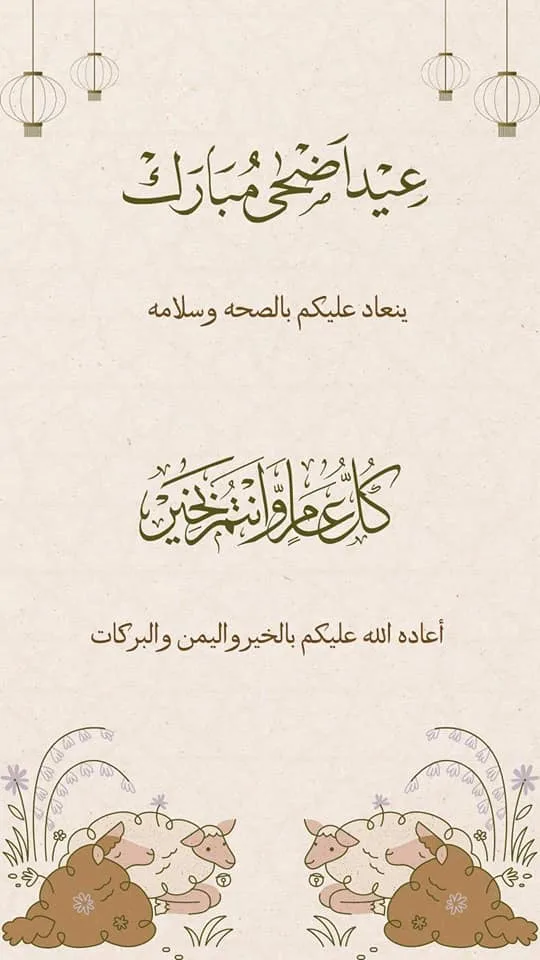 عِيْد اَضْحَى مُبَارَك
ينعاد عليكم بالصحه وسلامه
كُلُّ عَامٍ وَّانتُمْ بَخَيْرٌ
أعاده الله عليكم بالخير واليمن والبركات